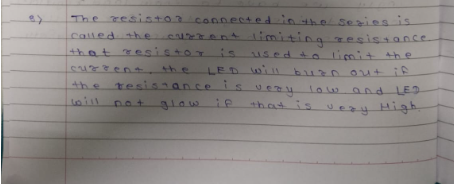 e) The resistor connected in the series is
called the current limiting resistance
that resistor is used to limit the
current. the LED will burn out if
the resistance is very low and LED
will not glow if that is very High.